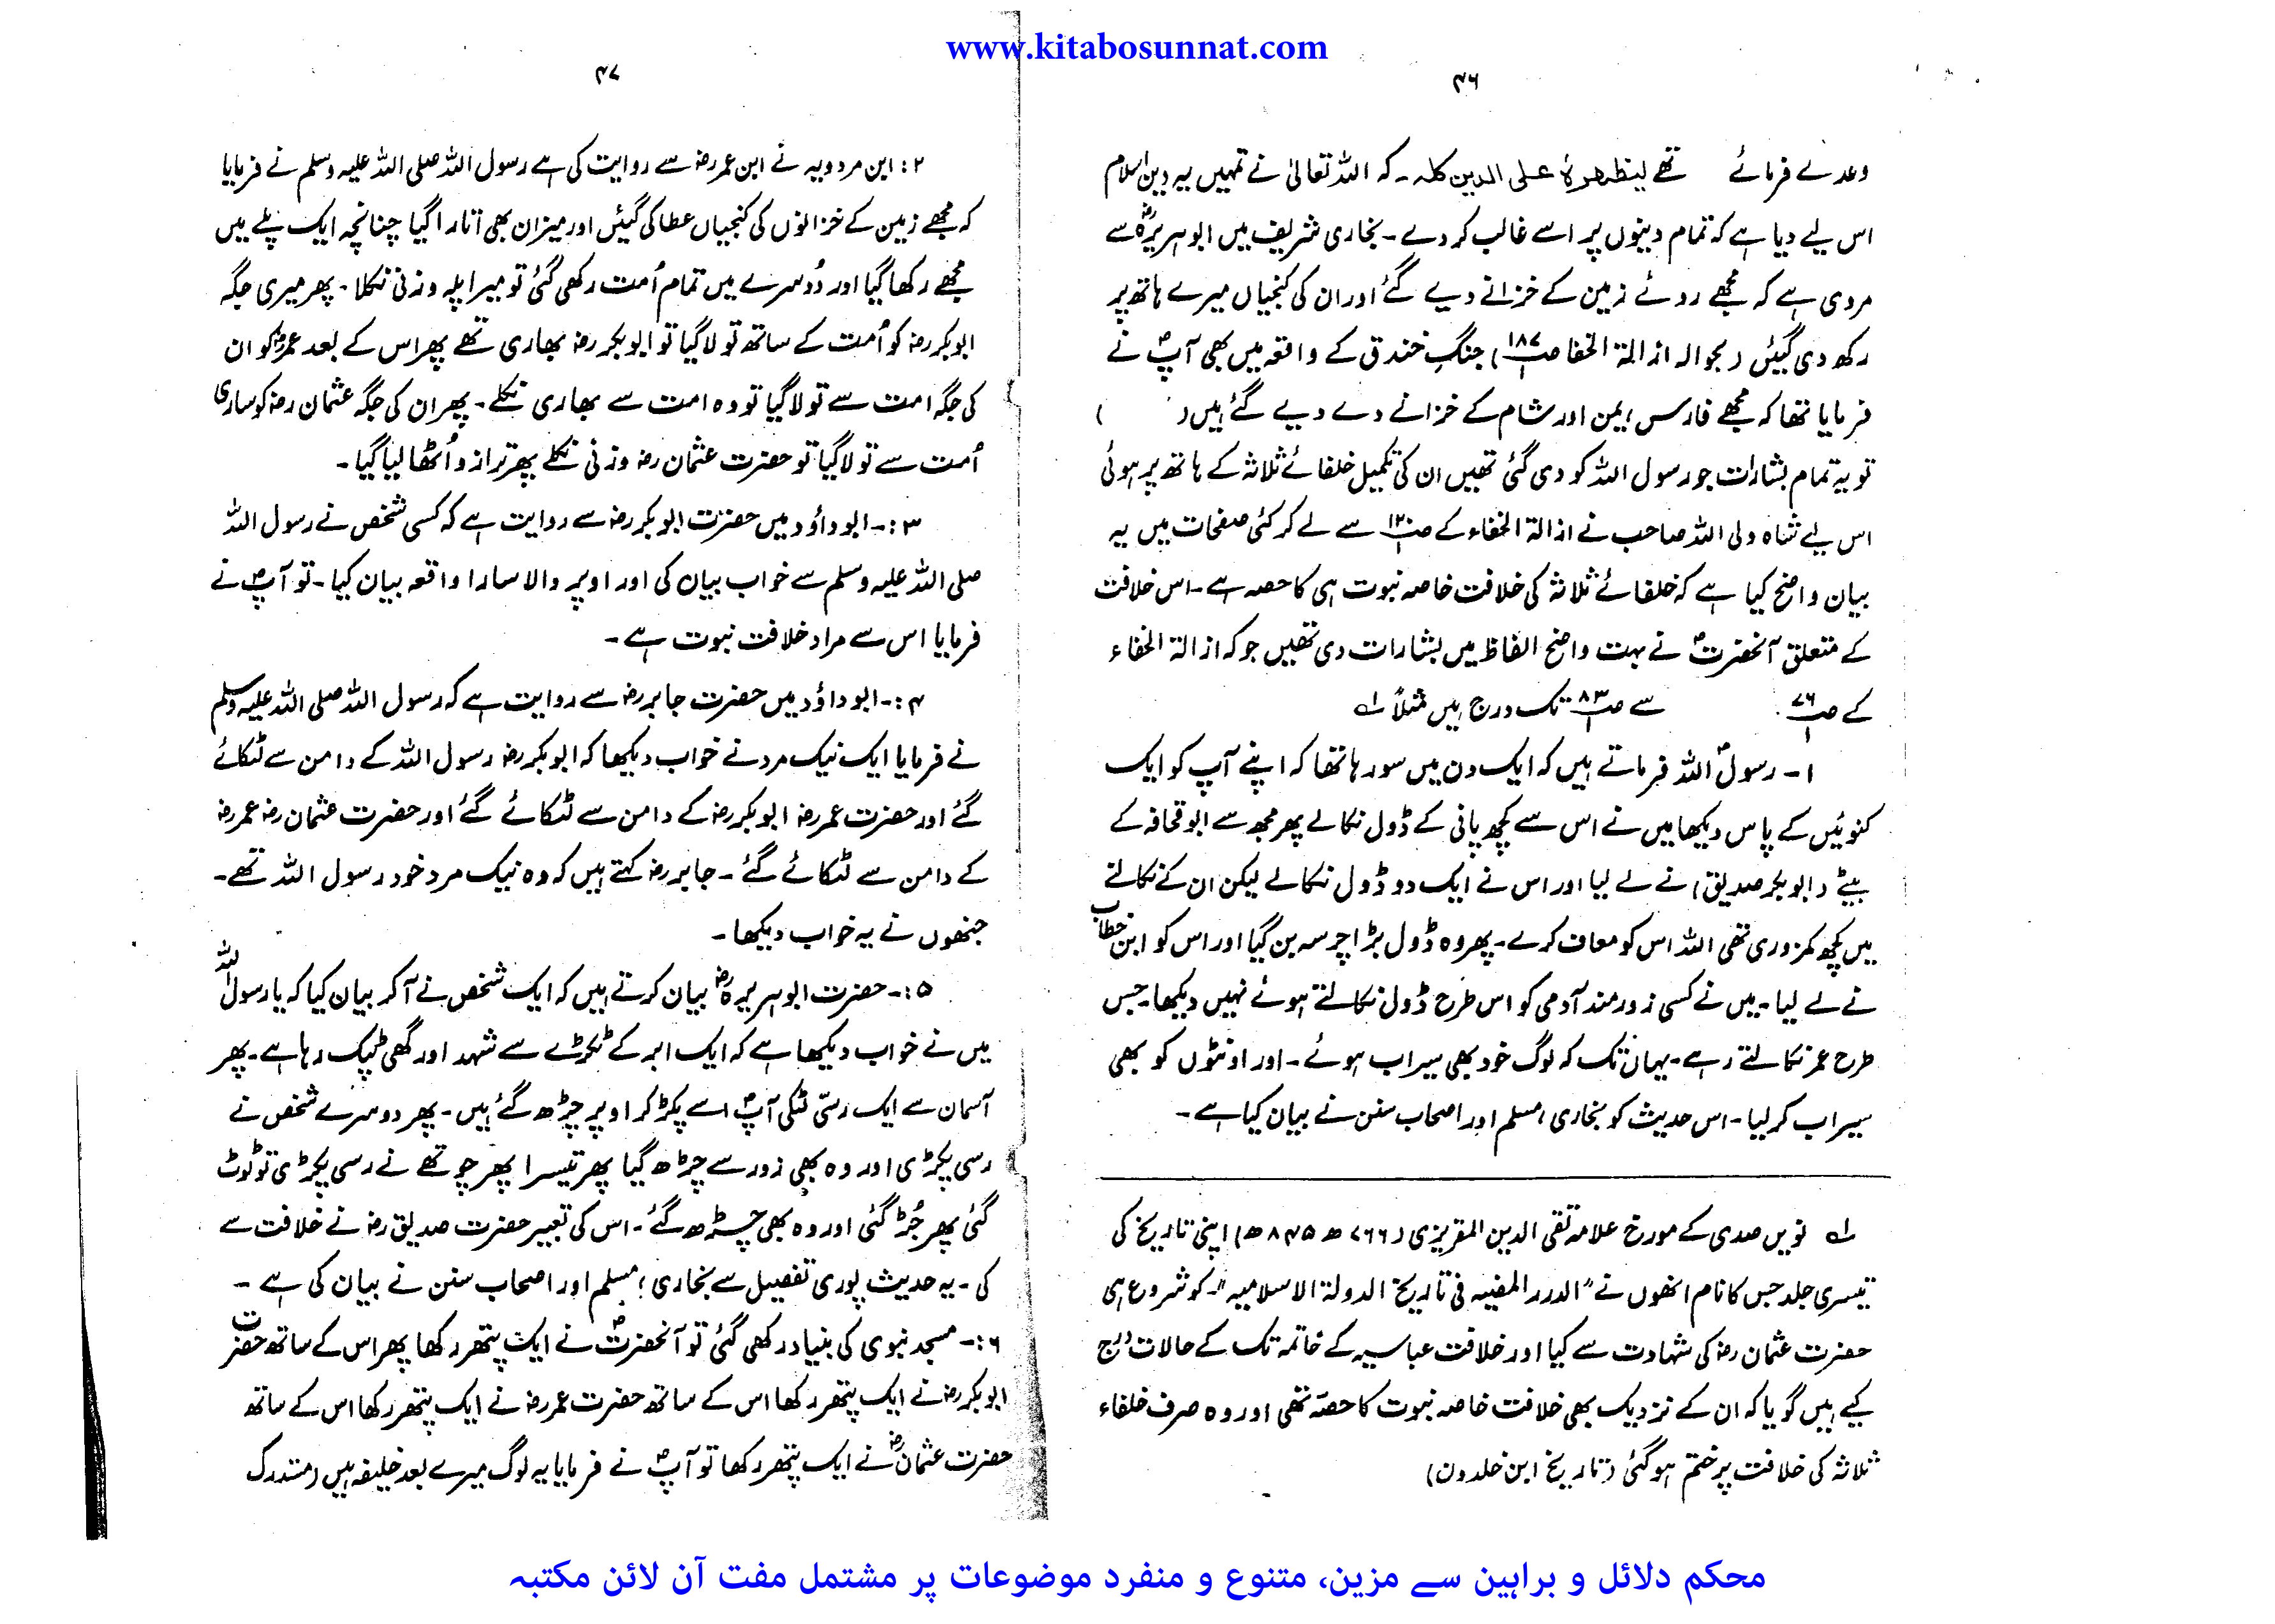 www.kitabosunnat.com
۴۶
وعدے فرمائے تھے لیظہرہٗ علی الدین کلہ۔ کہ اللہ تعالیٰ نے تمہیں یہ دین اسلام
اس لیے دیا ہے کہ تمام دینوں پر اسے غالب کر دے۔ بخاری شریف میں ابو ہریرہؓ سے
مروی ہے کہ مجھے روئے زمین کے خزانے دیے گئے اور ان کی کنجیاں میرے ہاتھ پر
رکھ دی گیئں (بحوالہ ازالۃ الخفا صـ۱۸۷/۱) جنگِ خندق کے واقعہ میں بھی آپؐ نے
فرمایا تھا کہ مجھے فارس، یمن اور شام کے خزانے دے دیے گئے ہیں ( )
تو یہ تمام بشارات جو رسول اللہ کو دی گئی تھیں ان کی تکمیل خلفائے ثلاثہ کے ہاتھ پر ہوئی
اس لیے شاہ ولی اللہ صاحب نے ازالۃ الخفاء کے صـ۱۲/۱ سے لے کر کئی صفحات میں یہ
بیان واضح کیا ہے کہ خلفائے ثلاثہ کی خلافت خاصہ نبوت ہی کا حصہ ہے۔ اس خلافت
کے متعلق آنحضرتؐ نے بہت واضح الفاظ میں بشارات دی تھیں جو کہ ازالۃ الخفاء
کے صـ۷۶/۱ سے صـ۸۳/۱ تک درج ہیں مثلاً لہ
۱۔ رسولؐ اللہ فرماتے ہیں کہ ایک دن میں سو رہا تھا کہ اپنے آپ کو ایک
کنوئیں کے پاس دیکھا میں نے اس سے کچھ پانی کے ڈول نکالے پھر مجھ سے ابو قحافہ کے
بیٹے (ابوبکر صدیق) نے لے لیا اور اس نے ایک دو ڈول نکالے لیکن ان کے نکالنے
میں کچھ کمزوری تھی اللہ اس کو معاف کرے۔ پھر وہ ڈول بڑا چرسہ بن گیا اور اس کو ابن خطاب
نے لے لیا۔ میں نے کسی زور مند آدمی کو اس طرح ڈول نکالتے ہوئے نہیں دیکھا۔ جس
طرح عمر نکالتے رہے۔ یہاں تک کہ لوگ خود بھی سیراب ہوئے۔ اور اونٹوں کو بھی
سیراب کر لیا۔ اس حدیث کو بخاری، مسلم اور اصحاب سنن نے بیان کیا ہے۔
لہ نویں صدی کے مورخ علامہ تقی الدین المقریزی (۷۶۶ھ ۸۴۵ھ) اپنی تاریخ کی
تیسری جلد جس کا نام انھوں نے "الدرر المضیہ فی تاریخ الدولۃ الاسلامیہ"۔ کو شروع ہی
حضرت عثمان رضہ کی شہادت سے کیا اور خلافت عباسیہ کے خاتمہ تک کے حالات درج
کیے ہیں گویا کہ ان کے نزدیک بھی خلافت خاصہ نبوت کا حصّہ تھی اور وہ صرف خلفاء
ثلاثہ کی خلافت پر ختم ہو گئی (تاریخ ابن خلدون)
۴۷
۲: ابن مردویہ نے ابن عمر رضہ سے روایت کی ہے رسول اللہ صلی اللہ علیہ وسلم نے فرمایا
کہ مجھے زمین کے خزانوں کی کنجیاں عطا کی گیئں اور میزان بھی اتارا گیا چنانچہ ایک پلے میں
مجھے رکھا گیا اور دُوسرے میں تمام اُمت رکھی گئی تو میرا پلہ وزنی نکلا۔ پھر میری جگہ
ابوبکر رضہ کو اُمت کے ساتھ تولا گیا تو ابوبکر رضہ بھاری تھے پھر اس کے بعد عمر رضہ کو ان
کی جگہ امت سے تولا گیا تو وہ امت سے بھاری نکلے۔ پھر ان کی جگہ عثمان رضہ کو ساری
اُمت سے تولا گیا تو حضرت عثمان رضہ وزنی نکلے پھر ترازو اُٹھا لیا گیا۔
۳:۔ ابو داؤد میں حضرت ابوبکر رضہ سے روایت ہے کہ کسی شخص نے رسول اللہ
صلی اللہ علیہ وسلم سے خواب بیان کی اور اوپر والا سارا واقعہ بیان کیا۔ تو آپؐ نے
فرمایا اس سے مراد خلافت نبوت ہے۔
۴:۔ ابو داؤد میں حضرت جابر رضہ سے روایت ہے کہ رسول اللہ صلی اللہ علیہ وسلم
نے فرمایا ایک نیک مرد نے خواب دیکھا کہ ابوبکر رضہ رسول اللہ کے دامن سے لٹکائے
گئے اور حضرت عمر رضہ ابوبکر رضہ کے دامن سے لٹکائے گئے اور حضرت عثمان رضہ عمر رضہ
کے دامن سے لٹکائے گئے۔ جابر رضہ کہتے ہیں کہ وہ نیک مرد خود رسول اللہ تھے۔
جنھوں نے یہ خواب دیکھا۔
۵:۔ حضرت ابو ہریرہ رضہ بیان کرتے ہیں کہ ایک شخص نے آ کر بیان کیا کہ یا رسول اللہ
میں نے خواب دیکھا ہے کہ ایک ابر کے ٹکڑے سے شہد اور گھی ٹپک رہا ہے۔ پھر
آسمان سے ایک رسّی لٹکی آپؐ اسے پکڑ کر اوپر چڑھ گئے ہیں۔ پھر دوسرے شخص نے
رسی پکڑی اور وہ بھی زور سے چڑھ گیا پھر تیسرا پھر چوتھے نے رسی پکڑی تو ٹوٹ
گئی پھر جُڑ گئی اور وہ بھی چڑھ گئے۔ اس کی تعبیر حضرت صدیق رضہ نے خلافت سے
کی۔ یہ حدیث پوری تفصیل سے بخاری؛ مسلم اور اصحاب سنن نے بیان کی ہے۔
۶:۔ مسجد نبوی کی بنیاد رکھی گئی تو آنحضرتؐ نے ایک پتھر رکھا پھر اس کے ساتھ حضرت
ابوبکر رضہ نے ایک پتھر رکھا اس کے ساتھ حضرت عمر رضہ نے ایک پتھر رکھا اس کے ساتھ
حضرت عثمان رضہ نے ایک پتھر رکھا تو آپؐ نے فرمایا یہ لوگ میرے بعد خلیفہ ہیں (مستدرک
محکم دلائل و براہین سے مزین، متنوع و منفرد موضوعات پر مشتمل مفت آن لائن مکتبہ